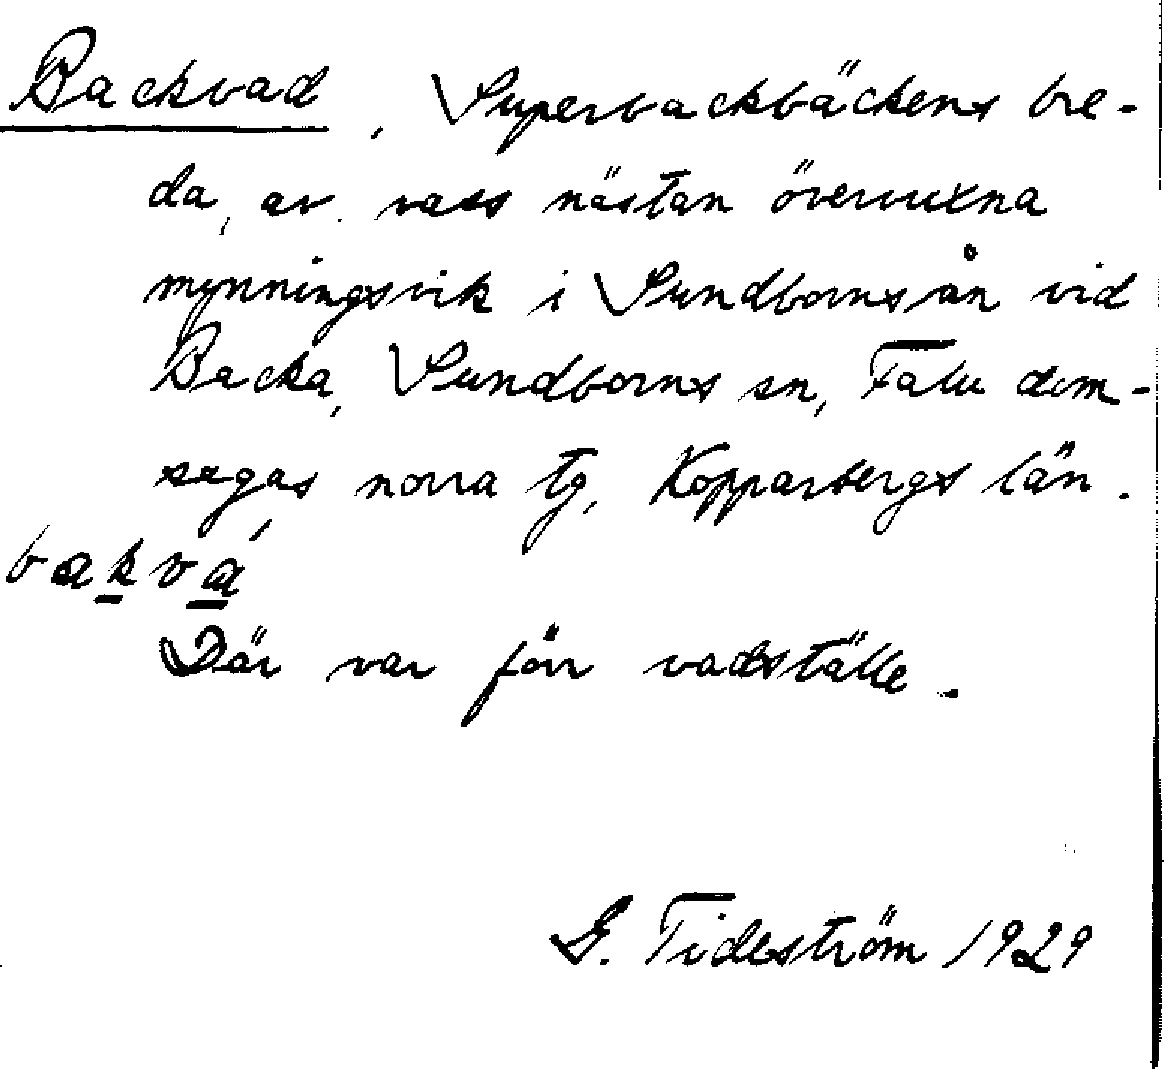 Backvad, Superbackbäckens bre-
da, av vass nästan övervuxna
mynningsvik i Sundbornsån vid
Backa, Sundborns sn, Falu dom-
sagas norra tg, Kopparbergs län.
bakvá
Där var förr vadställe.
G. Tideström 1929